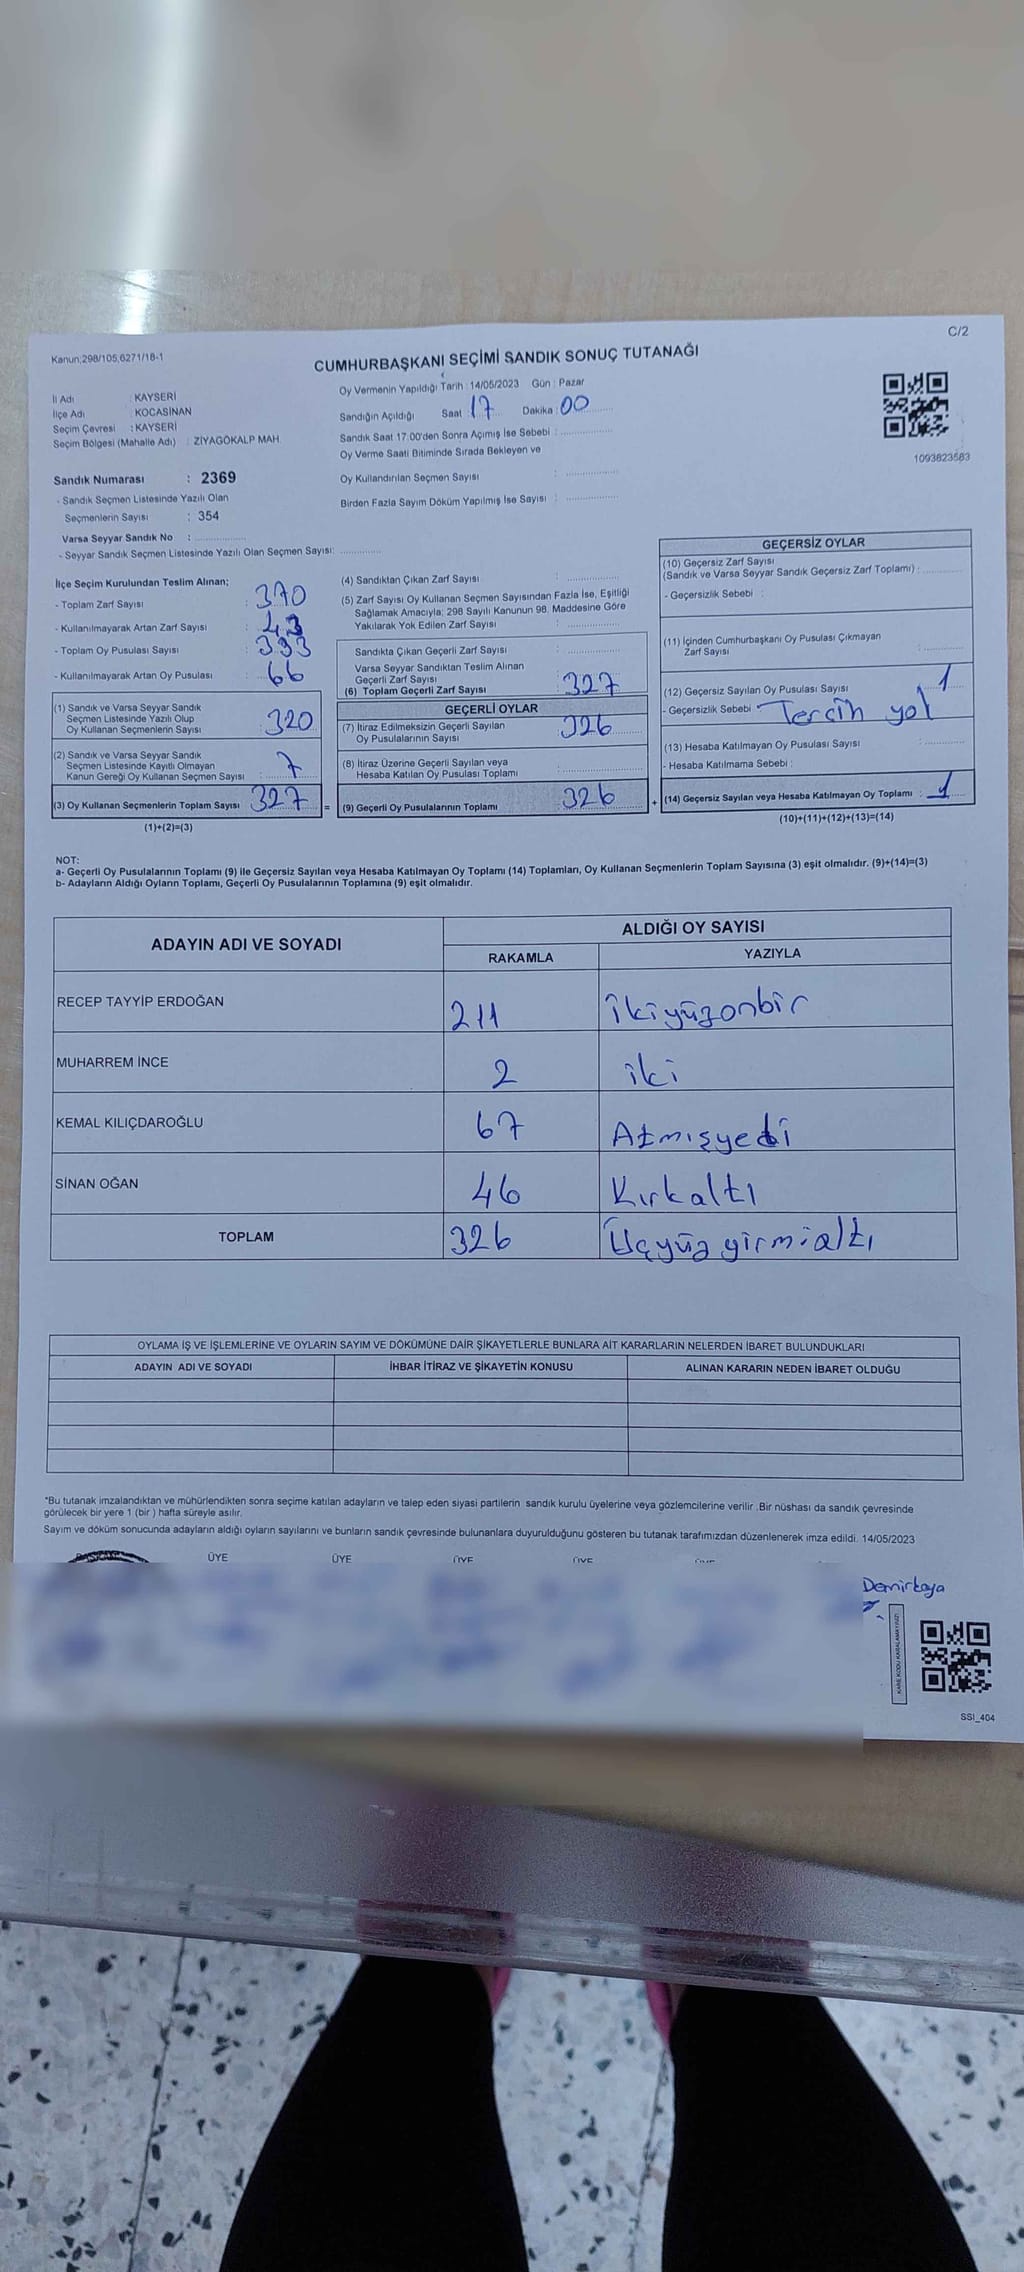 Kanun;298/105;6271/18-1
C/2
CUMHURBAŞKANI SEÇİMİ SANDIK SONUÇ TUTANAĞI
İl Adı : KAYSERİ
İlçe Adı : KOCASİNAN
Seçim Çevresi : KAYSERİ
Seçim Bölgesi (Mahalle Adı) : ZİYAGÖKALP MAH.
Oy Vermenin Yapıldığı Tarih : 14/05/2023 Gün : Pazar
Sandığın Açıldığı Saat : 17 Dakika : 00
Sandık Saat 17.00'den Sonra Açımış İse Sebebi :
Oy Verme Saati Bitiminde Sırada Bekleyen ve
Oy Kullandırılan Seçmen Sayısı :
Birden Fazla Sayım Döküm Yapılmış İse Sayısı :
1093823583
Sandık Numarası : 2369
- Sandık Seçmen Listesinde Yazılı Olan
Seçmenlerin Sayısı : 354
Varsa Seyyar Sandık No :
- Seyyar Sandık Seçmen Listesinde Yazılı Olan Seçmen Sayısı:
İlçe Seçim Kurulundan Teslim Alınan;
- Toplam Zarf Sayısı : 370
- Kullanılmayarak Artan Zarf Sayısı : 43
- Toplam Oy Pusulası Sayısı : 393
- Kullanılmayarak Artan Oy Pusulası : 66
(1) Sandık ve Varsa Seyyar Sandık
Seçmen Listesinde Yazılı Olup
Oy Kullanan Seçmenlerin Sayısı : 320
(2) Sandık ve Varsa Seyyar Sandık
Seçmen Listesinde Kayıtlı Olmayan
Kanun Gereği Oy Kullanan Seçmen Sayısı : 7
(3) Oy Kullanan Seçmenlerin Toplam Sayısı : 327
(1)+(2)=(3)
(4) Sandıktan Çıkan Zarf Sayısı :
(5) Zarf Sayısı Oy Kullanan Seçmen Sayısından Fazla İse, Eşitliği
Sağlamak Amacıyla; 298 Sayılı Kanunun 98. Maddesine Göre
Yakılarak Yok Edilen Zarf Sayısı :
Sandıkta Çıkan Geçerli Zarf Sayısı :
Varsa Seyyar Sandıktan Teslim Alınan
Geçerli Zarf Sayısı :
(6) Toplam Geçerli Zarf Sayısı : 327
GEÇERLİ OYLAR
(7) İtiraz Edilmeksizin Geçerli Sayılan
Oy Pusulalarının Sayısı : 326
(8) İtiraz Üzerine Geçerli Sayılan veya
Hesaba Katılan Oy Pusulası Toplamı :
= (9) Geçerli Oy Pusulalarının Toplamı : 326
GEÇERSİZ OYLAR
(10) Geçersiz Zarf Sayısı
(Sandık ve Varsa Seyyar Sandık Geçersiz Zarf Toplamı) :
- Geçersizlik Sebebi :
(11) İçinden Cumhurbaşkanı Oy Pusulası Çıkmayan
Zarf Sayısı :
(12) Geçersiz Sayılan Oy Pusulası Sayısı : 1
- Geçersizlik Sebebi : Tercih yok
(13) Hesaba Katılmayan Oy Pusulası Sayısı :
- Hesaba Katılmama Sebebi :
+ (14) Geçersiz Sayılan veya Hesaba Katılmayan Oy Toplamı : 1
(10)+(11)+(12)+(13)=(14)
NOT:
a- Geçerli Oy Pusulalarının Toplamı (9) ile Geçersiz Sayılan veya Hesaba Katılmayan Oy Toplamı (14) Toplamları, Oy Kullanan Seçmenlerin Toplam Sayısına (3) eşit olmalıdır. (9)+(14)=(3)
b- Adayların Aldığı Oyların Toplamı, Geçerli Oy Pusulalarının Toplamına (9) eşit olmalıdır.
ADAYIN ADI VE SOYADI
ALDIĞI OY SAYISI
RAKAMLA YAZIYLA
RECEP TAYYİP ERDOĞAN 211 ikiyüzonbir
MUHARREM İNCE 2 iki
KEMAL KILIÇDAROĞLU 67 Atmışyedi
SİNAN OĞAN 46 Kırkaltı
TOPLAM 326 Üçyüz yirmialtı
OYLAMA İŞ VE İŞLEMLERİNE VE OYLARIN SAYIM VE DÖKÜMÜNE DAİR ŞİKAYETLERLE BUNLARA AİT KARARLARIN NELERDEN İBARET BULUNDUKLARI
ADAYIN ADI VE SOYADI İHBAR İTİRAZ VE ŞİKAYETİN KONUSU ALINAN KARARIN NEDEN İBARET OLDUĞU
*Bu tutanak imzalandıktan ve mühürlendikten sonra seçime katılan adayların ve talep eden siyasi partilerin sandık kurulu üyelerine veya gözlemcilerine verilir .Bir nüshası da sandık çevresinde
görülecek bir yere 1 (bir ) hafta süreyle asılır.
Sayım ve döküm sonucunda adayların aldığı oyların sayılarını ve bunların sandık çevresinde bulunanlara duyurulduğunu gösteren bu tutanak tarafımızdan düzenlenerek imza edildi. 14/05/2023
BAŞKAN ÜYE ÜYE ÜYE ÜYE
Demirkaya
KARE KODU KARALAMAYINIZ!
SSI_404